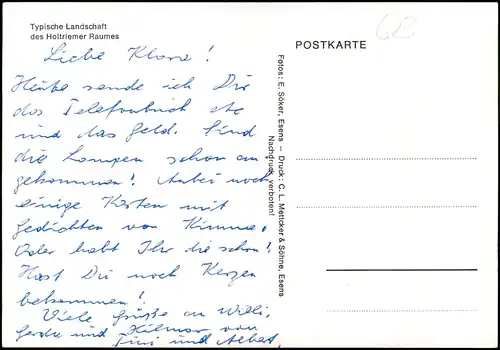 Typische Landschaft
des Holtriemer Raumes
Liebe Klara!
Heute sende ich Dir
das Telefonbuch etc
und das Geld. Sind
die Lampen schon an
gekommen! Anbei noch
einige Karten mit
Gedichten von Kimme.
Oder habt Ihr die schon!
Hast Du noch Kerzen
bekommen!
Viele Grüße an Willi,
Gerda und Hilmar, von
Tini und Albet
POSTKARTE
623
Fotos: E. Söker, Esens – Druck: C. L. Mettcker & Söhne, Esens
Nachdruck verboten!